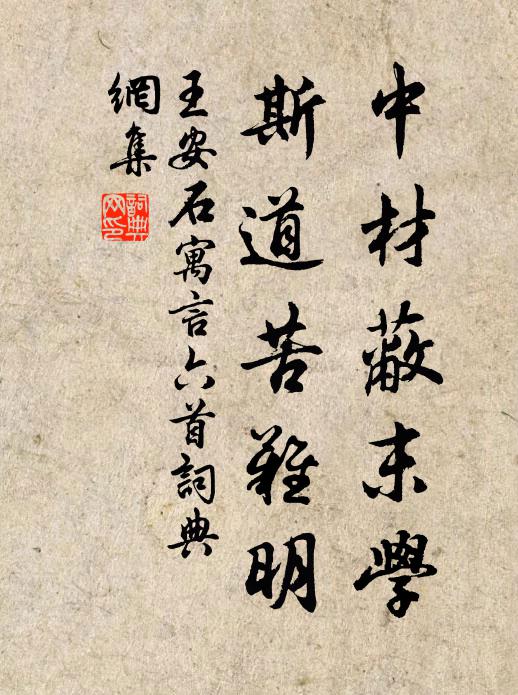 中材蔽末學
斯道苦難明
王安石寓言六首詞典
網集
詞典網印